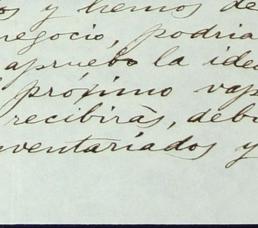 os y hemos de
negocio, podria
apruebo la ide
próximo vap
recibirás, deb
nventariados y